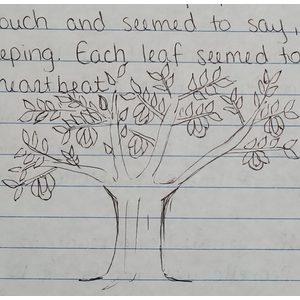 ouch and seemed to say,
eeping. Each leaf seemed to
heartbeat.